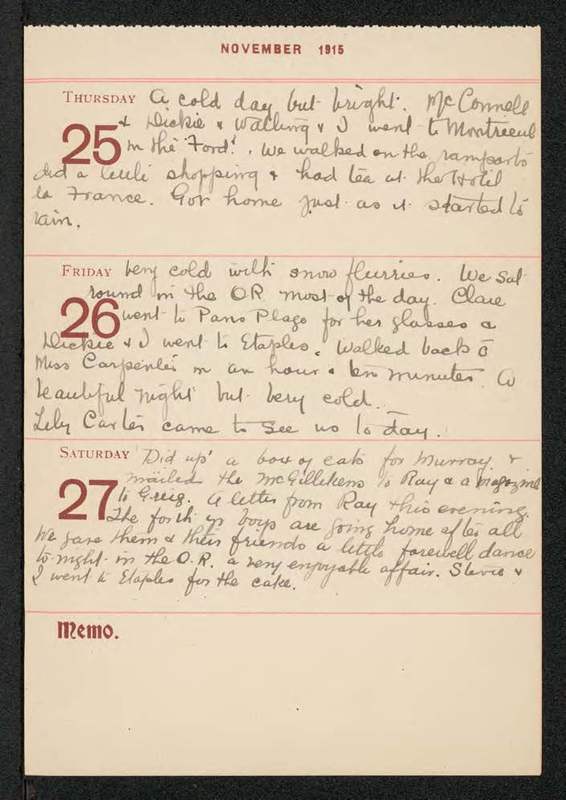 NOVEMBER 1915
THURSDAY A cold day but bright. McConnell
25 & Dickie & Walling & I went to Montreuil
in the "Ford". We walked on the ramparts
did a little shopping & had tea at the Hotel
la France. Got home just as it started to
rain.
FRIDAY Very cold with snow flurries. We sat
round in the O.R. most of the day. Clare
26 went to Paris Plage for her glasses &
Dickie & I went to Etaples. Walked back c̄
Miss Carpenter in an hour & ten minutes. A
beautiful night but very cold.
Lily Carter came to see us to day.
SATURDAY "Did up" a box of eats for Murray &
mailed the McGillikens to Ray & a magazine
27 to Greig. A letter from Ray this evening.
The forth yr boys are going home after all
We gave them & their friends a little farewell dance
to-night in the O.R. a very enjoyable affair. &
I went to Etaples for the cake.
Memo.